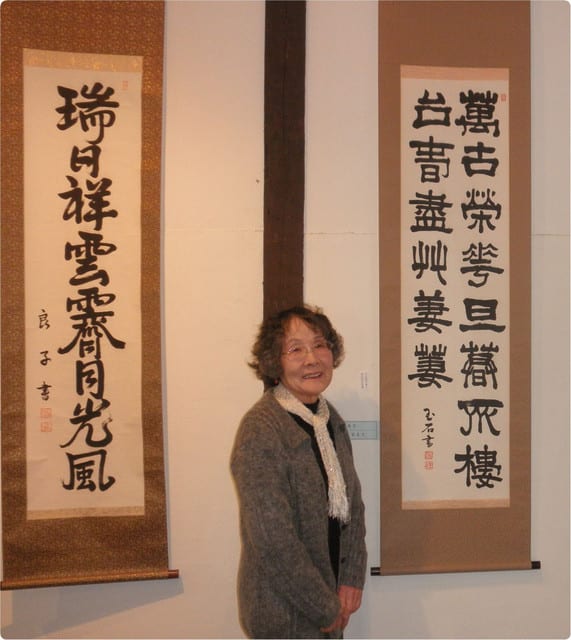 萬古榮華旦暮齊樓
台春盡艸萋萋
玉石書
瑞日祥雲霽月光風
良子書